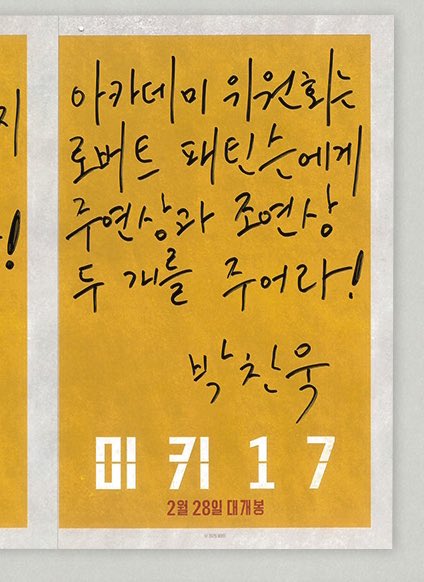 지
!
아카데미 위원회는
로버트 패틴슨에게
주연상과 조연상
두 개를 주어라!
박찬욱
미키 17
2월 28일 대개봉